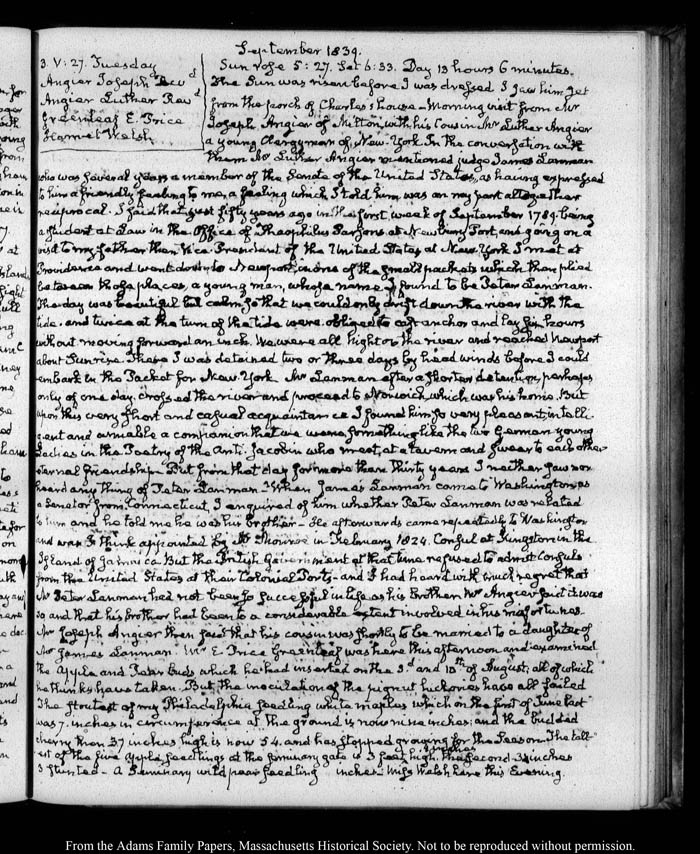 September 1839.
3. V: 27. Tuesday
Angier Joseph Rev.d
Angier Luther Rev.d
Greenleaf E. Price
Harriet Welsh
Sun rose 5:27. Set 6:33. Day 13 hours 6 minutes.
The Sun was risen before I was dressed I saw him set
from the porch of Charles's house—Morning visit from Mr
Joseph Angier of Milton, with his Cousin Mr Luther Angier
a young Clergyman of New-York. In the conversation with
them Mr Luther Angier mentioned judge James Lanman
who was several years a member of the Senate of the United States, as having expressed
to him a friendly feeling to me, a feeling which I told him was on my part altogether
reciprocal. I said that just fifty years ago in the first week of September 1789. being
a student at Law in the Office of Theophilus Parsons at Newbury Port, and going on a
visit to my father then Vice President of the United States at New York I met at
Providence and went down to Newport, in one of the small packets which then plied
between those places, a young man, whose name I found to be Peter Lanman.
The day was beautiful but calm, so that we could only drift down the river with the
tide. and twice at the turn of the tide were obliged to cast anchor and lay six hours
without moving forward an inch. We were all night on the river and reached Newport
about Sunrise. There I was detained two or three days by head winds before I could
embark in the Packet for New York. Mr Lanman after a shorter detention, perhaps
only of one day. crossed the river and proceeded to Norwich which was his home. But
upon this very short and casual acquaintance I found him so very pleasant, intelli-
gent and amiable a companion that we were something like the two German young
Ladies in the Poetry of the Anti-Jacobin who meet, at a tavern and swear to each other
eternal friendship. But from that day for more than thirty years I neither saw nor
heard any thing of Peter Lanman—When James Lanman came to Washington as
a Senator from Connecticut, I enquired of him whether Peter Lanman was related
to him and he told me he was his brother—He afterwards came repeatedly to Washington
and was I think appointed by Mr Monroe in February 1824. Consul at Kingston in the
Island of Jamaica. But the British Government at that time refused to admit Consuls
from the United States at their Colonial Ports—and I had heard with much regret that
Mr Peter Lanman had not been so successful in life as his brother. Mr Angier said it was
so and that his brother had been to a considerable extent involved in his misfortunes.
Mr Joseph Angier then said that his cousin was shortly to be married to a daughter of
Mr James Lanman. Mr E. Price Greenleaf was here this afternoon and examined
the Apple and Pear buds which he had inserted on the 3.d and 10th of August, all of which
he thinks have taken. But the inoculation of the pignut hickories have all failed
The stoutest of my Philadelphia seedling white maples which on the first of June last
was 7. inches in circumference at the ground is now nine inches; and the budded
cherry then 37 inches high is now 54. and has stopped growing for the Season. The tall-
est of the five apple seedlings at the seminary gate is 3 feet high. The second 31 inches
3 stunted—A Seminary wild pear seedling inches—Miss Welsh here this Evening.
From the Adams Family Papers, Massachusetts Historical Society. Not to be reproduced without permission.